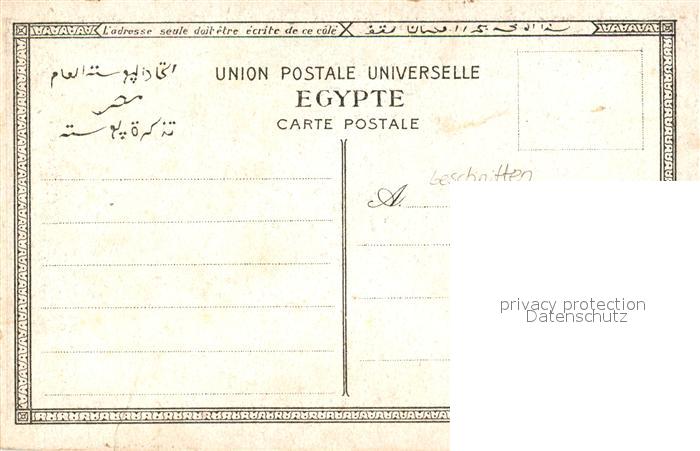 L'adresse seule doit être écrite de ce côté
UNION POSTALE UNIVERSELLE
EGYPTE
CARTE POSTALE
اتحاد البوسته العام
مصر
تذكرة بوسته
beschnitten
A.
privacy protection
Datenschutz